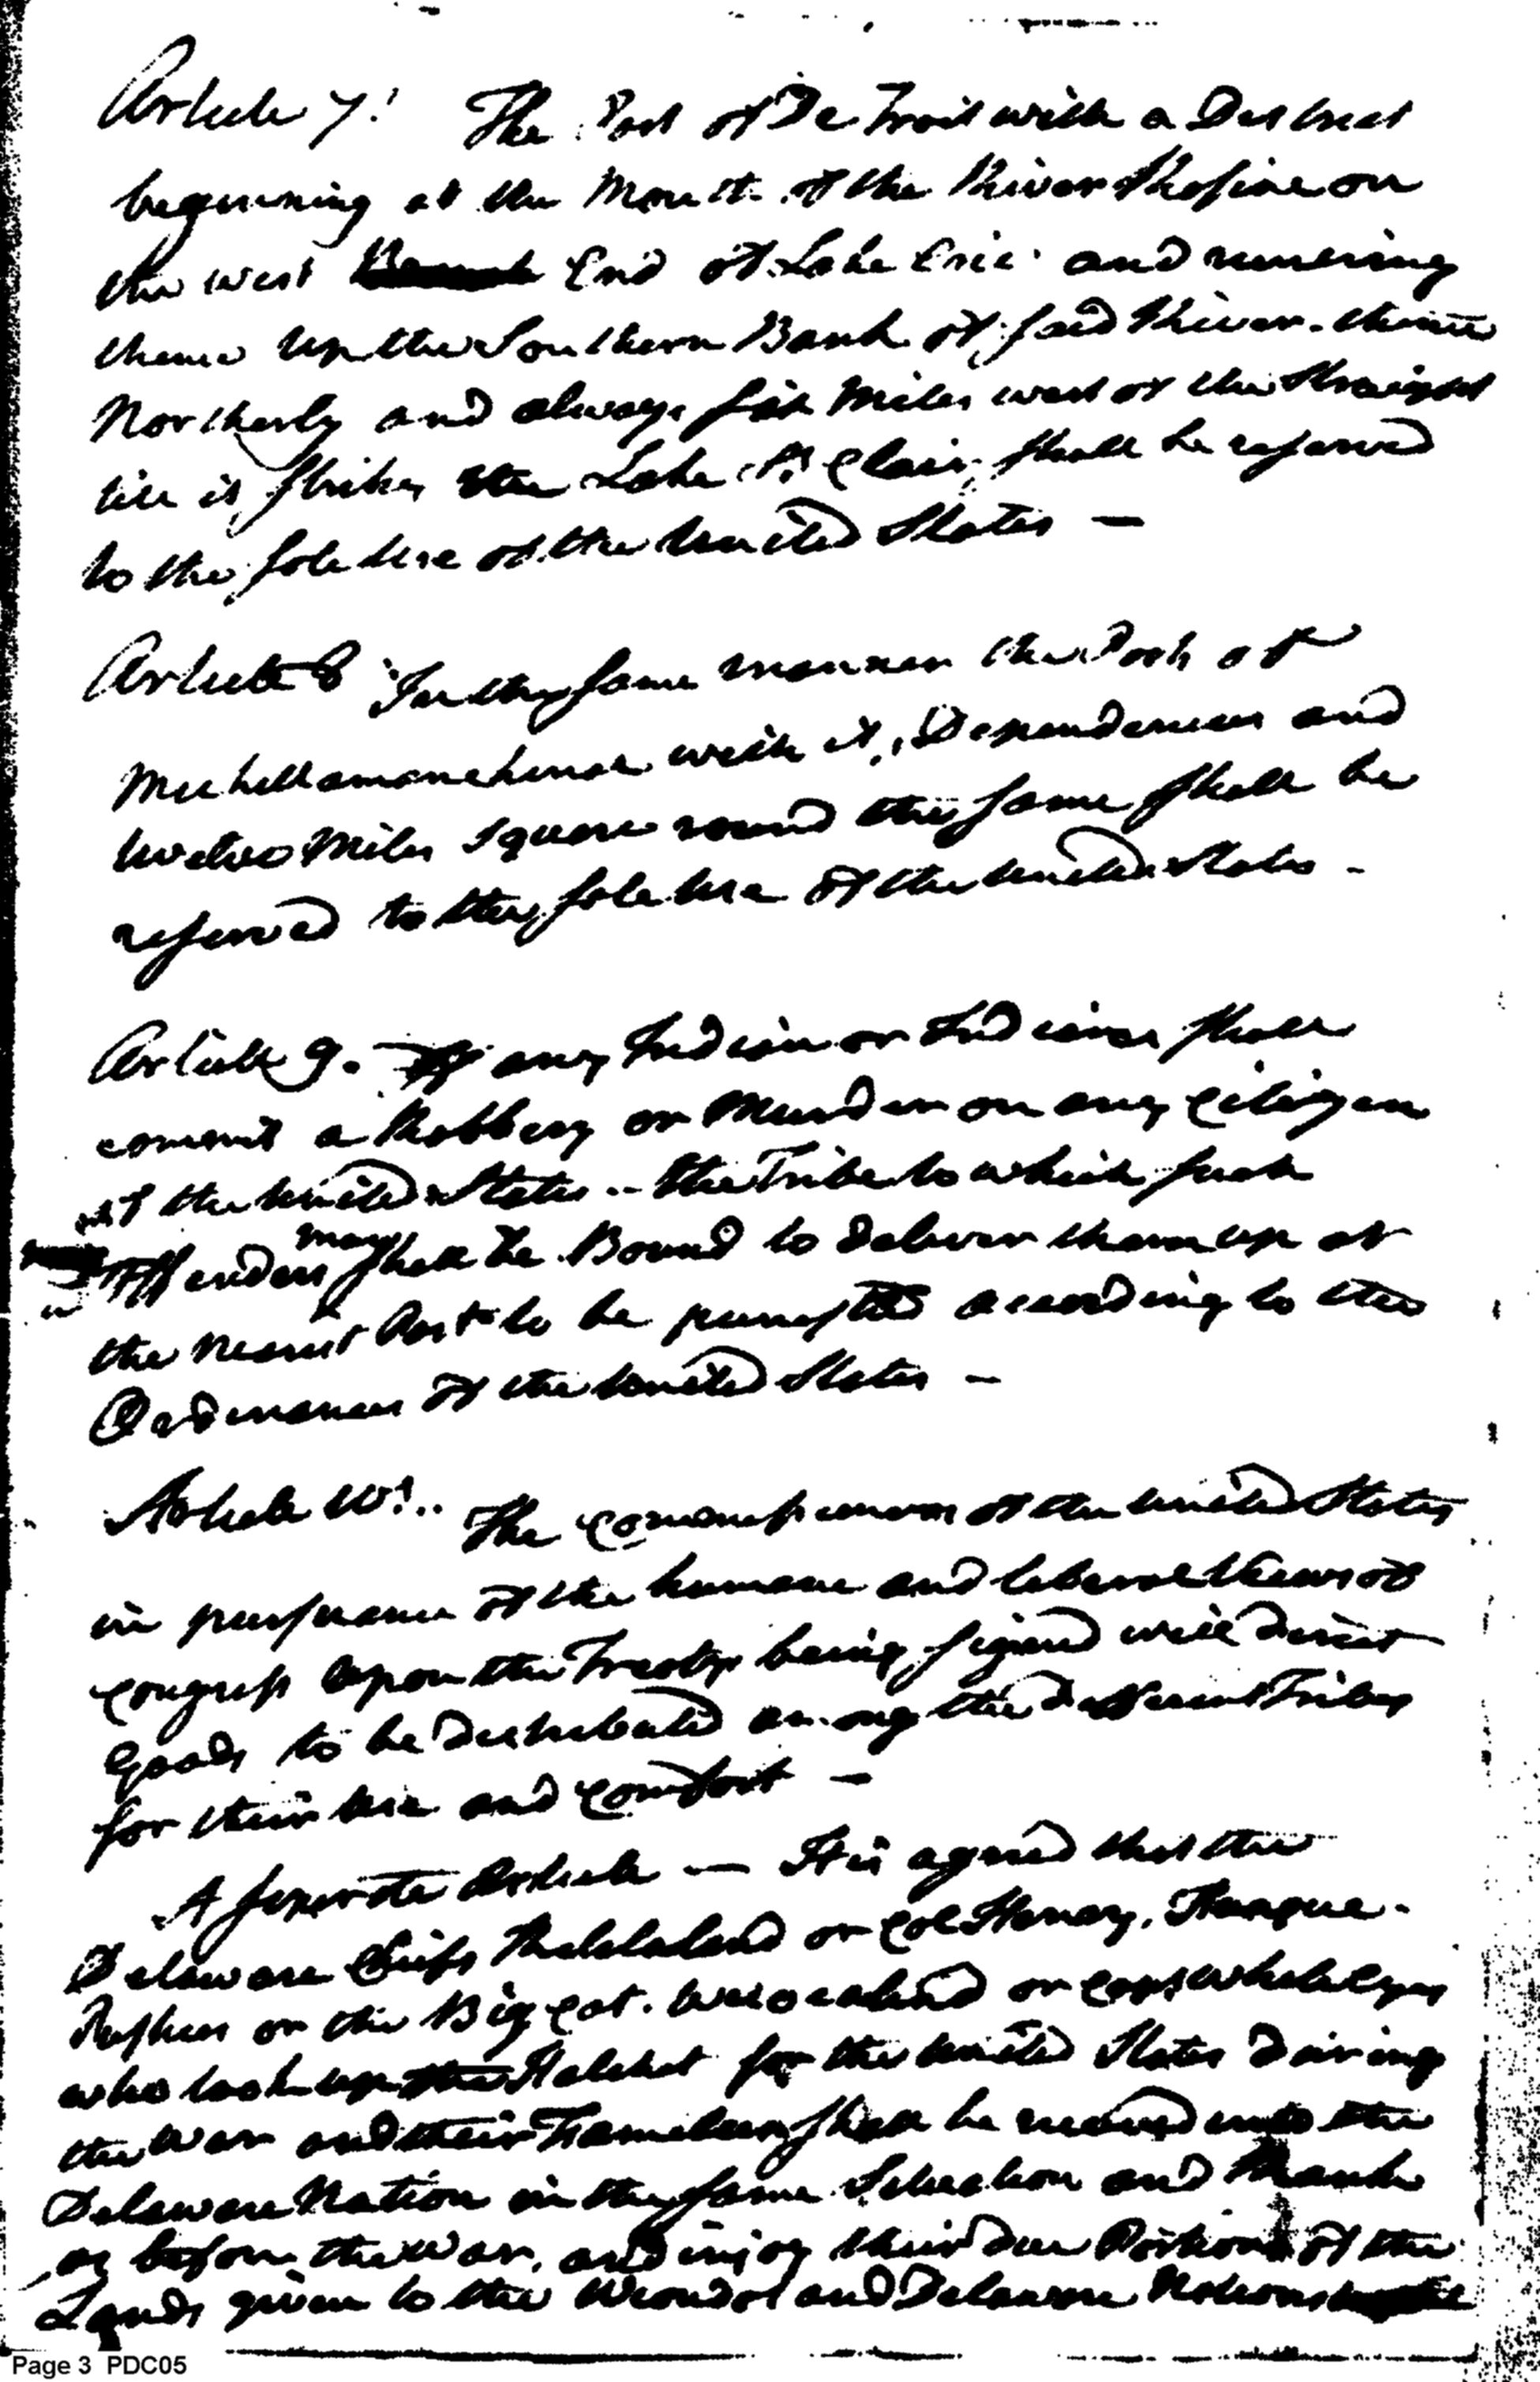 Article 7th The Post of De Troit with a District
beginning at the Mouth of the River Rosine on
the west End of Lake Erie and running
thence up the Southern Bank of said River thence
Northerly and always six Miles west of the Straight
till it strikes the Lake St Clair, shall be reserved
to the sole Use of the United States —
Article 8 In the same manner the Post of
Michillamanchinac with its Dependencies and
twelve Miles Square round the same shall be
reserved to the sole Use of the United States -
Article 9. If any Indian or Indians shall
commit a Robbery or Murder on any Citizen
of the United States .. the Tribe to which such
may
Offenders shall be Bound to deliver them up at
the nearest Post to be punished according to the
Ordinances of the United States —
Article 10th.. The Commissioners of the United States
in pursuance of the humane and liberal Views of
Congress Upon the Treaty being signed will direct
Goods to be distributed among the different Tribes
for their Use and Comfort —
A seperate Article — It is agreed that the
Delaware Chiefs Kelelalend or Col Henry, Hengue-
Pushees or the Big Cat. Wicocalind or Capt White Eyes
who took up the Hatchet for the United States during
the War and their Families shall be received into the
Delaware Nation in the same Situation and Rank
as before the War, and enjoy their due Portions of the
Lands given to the Wiondot and Delaware Nations
Page 3 PDC05